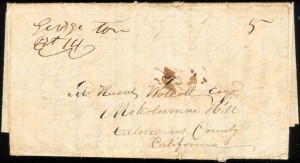 George town
Oct 14
5
Wolcott Esqr
Mokolumne Hill
Calaveras County
California